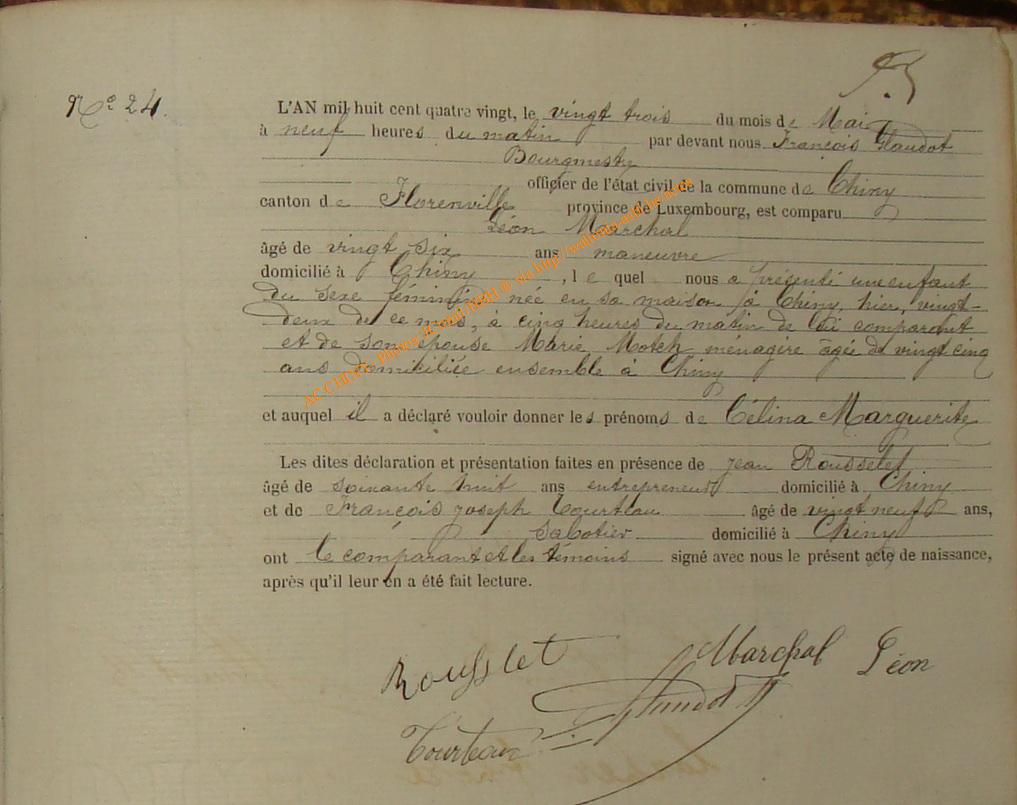 N° 24.
L'AN mil huit cent quatre vingt, le vingt trois du mois de Mai
à neuf heures du matin par devant nous François Glaudot
Bourgmestre
officier de l'état civil de la commune de Chiny
canton de Florenville province de Luxembourg, est comparu
Léon Marchal
âgé de vingt six ans maneuvre
domicilié à Chiny, le quel nous a présenté un enfant
du sexe féminin née en sa maison à Chiny, hier, vingt-
deux de ce mois, à cinq heures du matin de lui comparant
et de son épouse Marie Motch ménagère âgée de vingt cinq
ans domiciliée ensemble à Chiny
et auquel il a déclaré vouloir donner les prénoms de Célina Marguerite
Les dites déclaration et présentation faites en présence de Jean Rousselet
âgé de soixante huit ans entrepreneur domicilié à Chiny
et de François Joseph Tourteau âgé de vingt neuf ans,
sabotier domicilié à Chiny
ont le comparant et les témoins signé avec nous le présent acte de naissance,
après qu'il leur en a été fait lecture.
Rousslet Marchal Léon
Glaudot
Tourteau